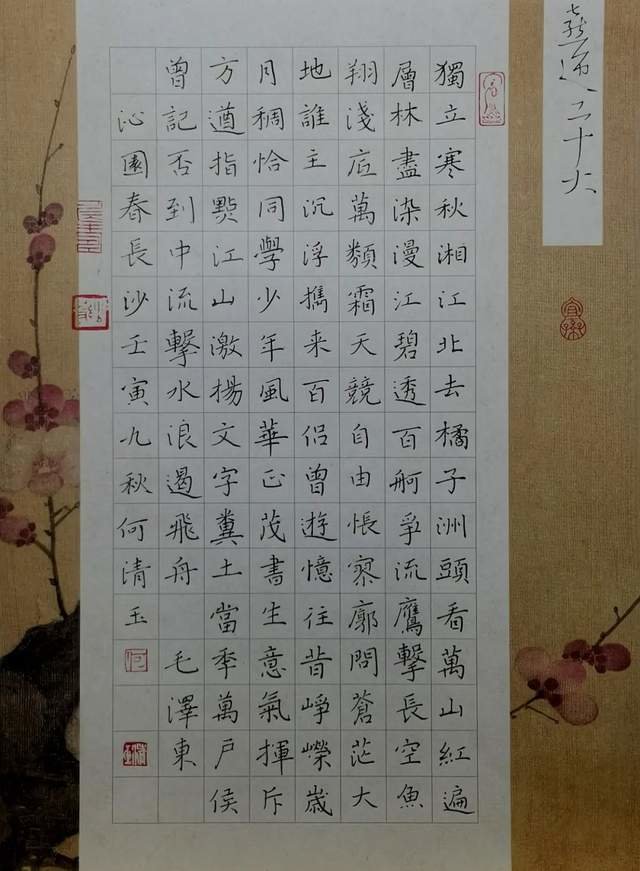 喜迎二十大
獨立寒秋湘江北去橘子洲頭看萬山紅遍
層林盡染漫江碧透百舸爭流鷹擊長空魚
翔淺底萬類霜天競自由悵寥廓問蒼茫大
地誰主沉浮攜来百侣曾遊憶往昔崢嶸歲
月稠恰同學少年風華正茂書生意氣揮斥
方遒指點江山激揚文字糞土當年萬戶侯
曾記否到中流擊水浪遏飛舟 毛澤東
沁園春長沙壬寅九秋何清玉